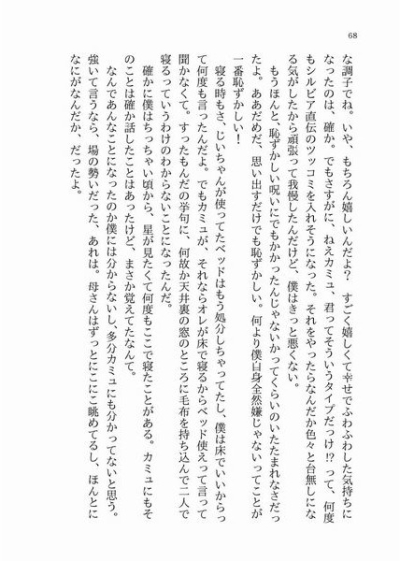 68
な調子でね。いや、もちろん嬉しいんだよ？　すごく嬉しくて幸せでふわふわした気持ちに
なったのは、確か。でもさすがに、ねえカミュ、君ってそういうタイプだっけ!? って、何度
もシルビア直伝のツッコミを入れそうになった。それをやったらなんだか色々と台無しにな
る気がしたから頑張って我慢したんだけど、僕はきっと悪くない。
もうほんと、恥ずかしい呪いにでもかかったんじゃないかってくらいのいたたまれなさだっ
たよ。ああだめだ、思い出すだけでも恥ずかしい。何より僕自身全然嫌じゃないってことが
一番恥ずかしい！
寝る時もさ、じいちゃんが使ってたベッドはもう処分しちゃってたし、僕は床でいいからっ
て何度も言ったんだよ。でもカミュが、それならオレが床で寝るからベッド使えって言って
聞かなくて。すったもんだの挙句に、何故か天井裏の窓のところに毛布を持ち込んで二人で
寝るっていうわけのわからないことになったんだ。
確かに僕はちっちゃい頃から、星が見たくて何度もここで寝たことがある。カミュにもそ
のことは確か話したことはあったけど、まさか覚えてたなんて。
なんであんなことになったのか僕には分からないし、多分カミュにも分かってないと思う。
強いて言うなら、場の勢いだった、あれは。母さんはずっとにこにこ眺めてるし、ほんとに
なにがなんだか、だったよ。